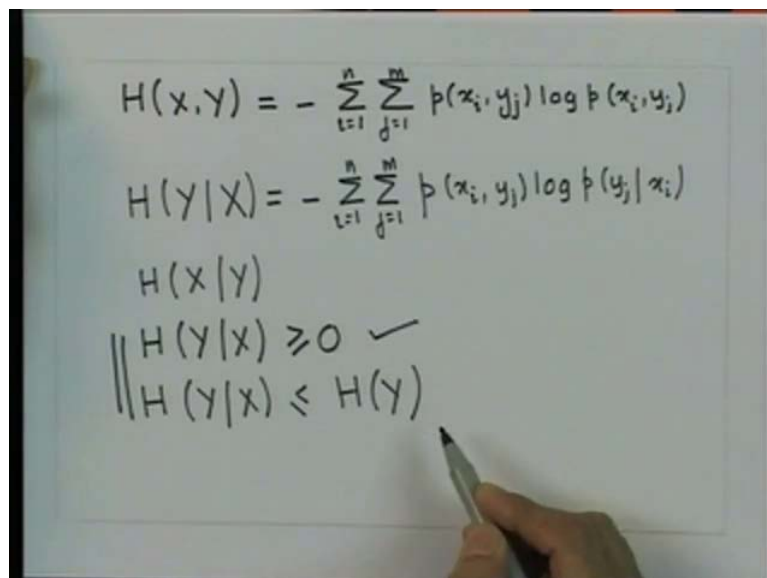 H(X,Y) = - n∑i=1 m∑j=1 p(xi, yj) log p(xi,yj)
H(Y|X) = - n∑i=1 m∑j=1 p(xi, yj) log p(yj|xi)
H(X|Y)
H(Y|X) ≥ 0 ✓
H(Y|X) ≤ H(Y)